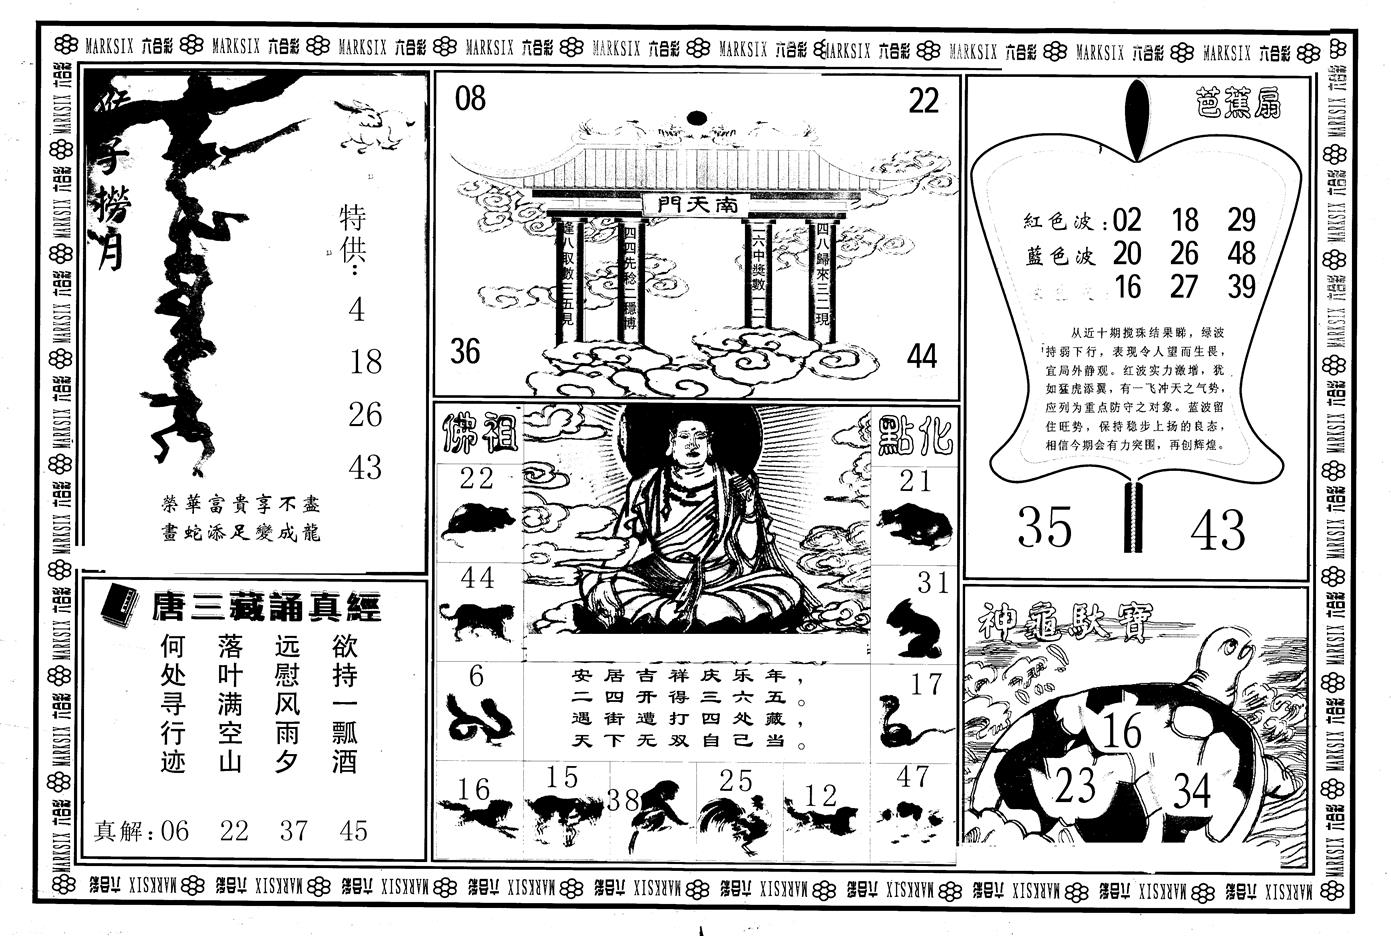 MARKSIX 六合彩 MARKSIX 六合彩 MARKSIX 六合彩 MARKSIX 六合彩 MARKSIX 六合彩 MARKSIX 六合彩 MARKSIX 六合彩 MARKSIX 六合彩 MARKSIX 六合彩 MARKSIX 六合彩
猴子撈月
特供:
4
18
26
43
榮華富貴享不盡
畫蛇添足變成龍
唐三藏誦真經
欲持一瓢酒
远慰风雨夕
落叶满空山
何处寻行迹
真解:06 22 37 45
08 22
門天南
四八歸來三二現
二六中獎數一二
四四先稔二穩博
逢八取數三五見
36 44
佛祖 點化
22 21
44 31
6 17
安居吉祥庆乐年，
二四开得三六五。
遇街遭打四处藏，
天下无双自己当。
16 15 38 25 12 47
芭蕉扇
紅色波:02 18 29
藍色波 20 26 48
16 27 39
从近十期搅珠结果睇，绿波
持弱下行，表现令人望而生畏，
宜局外静观。红波实力激增，犹
如猛虎添翼，有一飞冲天之气势，
应列为重点防守之对象。蓝波留
住旺势，保持稳步上扬的良态，
相信今期会有力突围，再创辉煌。
35 43
神龜馱寶
16
23 34
MARKSIX 六合彩 MARKSIX 六合彩 MARKSIX 六合彩 MARKSIX 六合彩 MARKSIX 六合彩 MARKSIX 六合彩 MARKSIX 六合彩 MARKSIX 六合彩 MARKSIX 六合彩 MARKSIX 六合彩